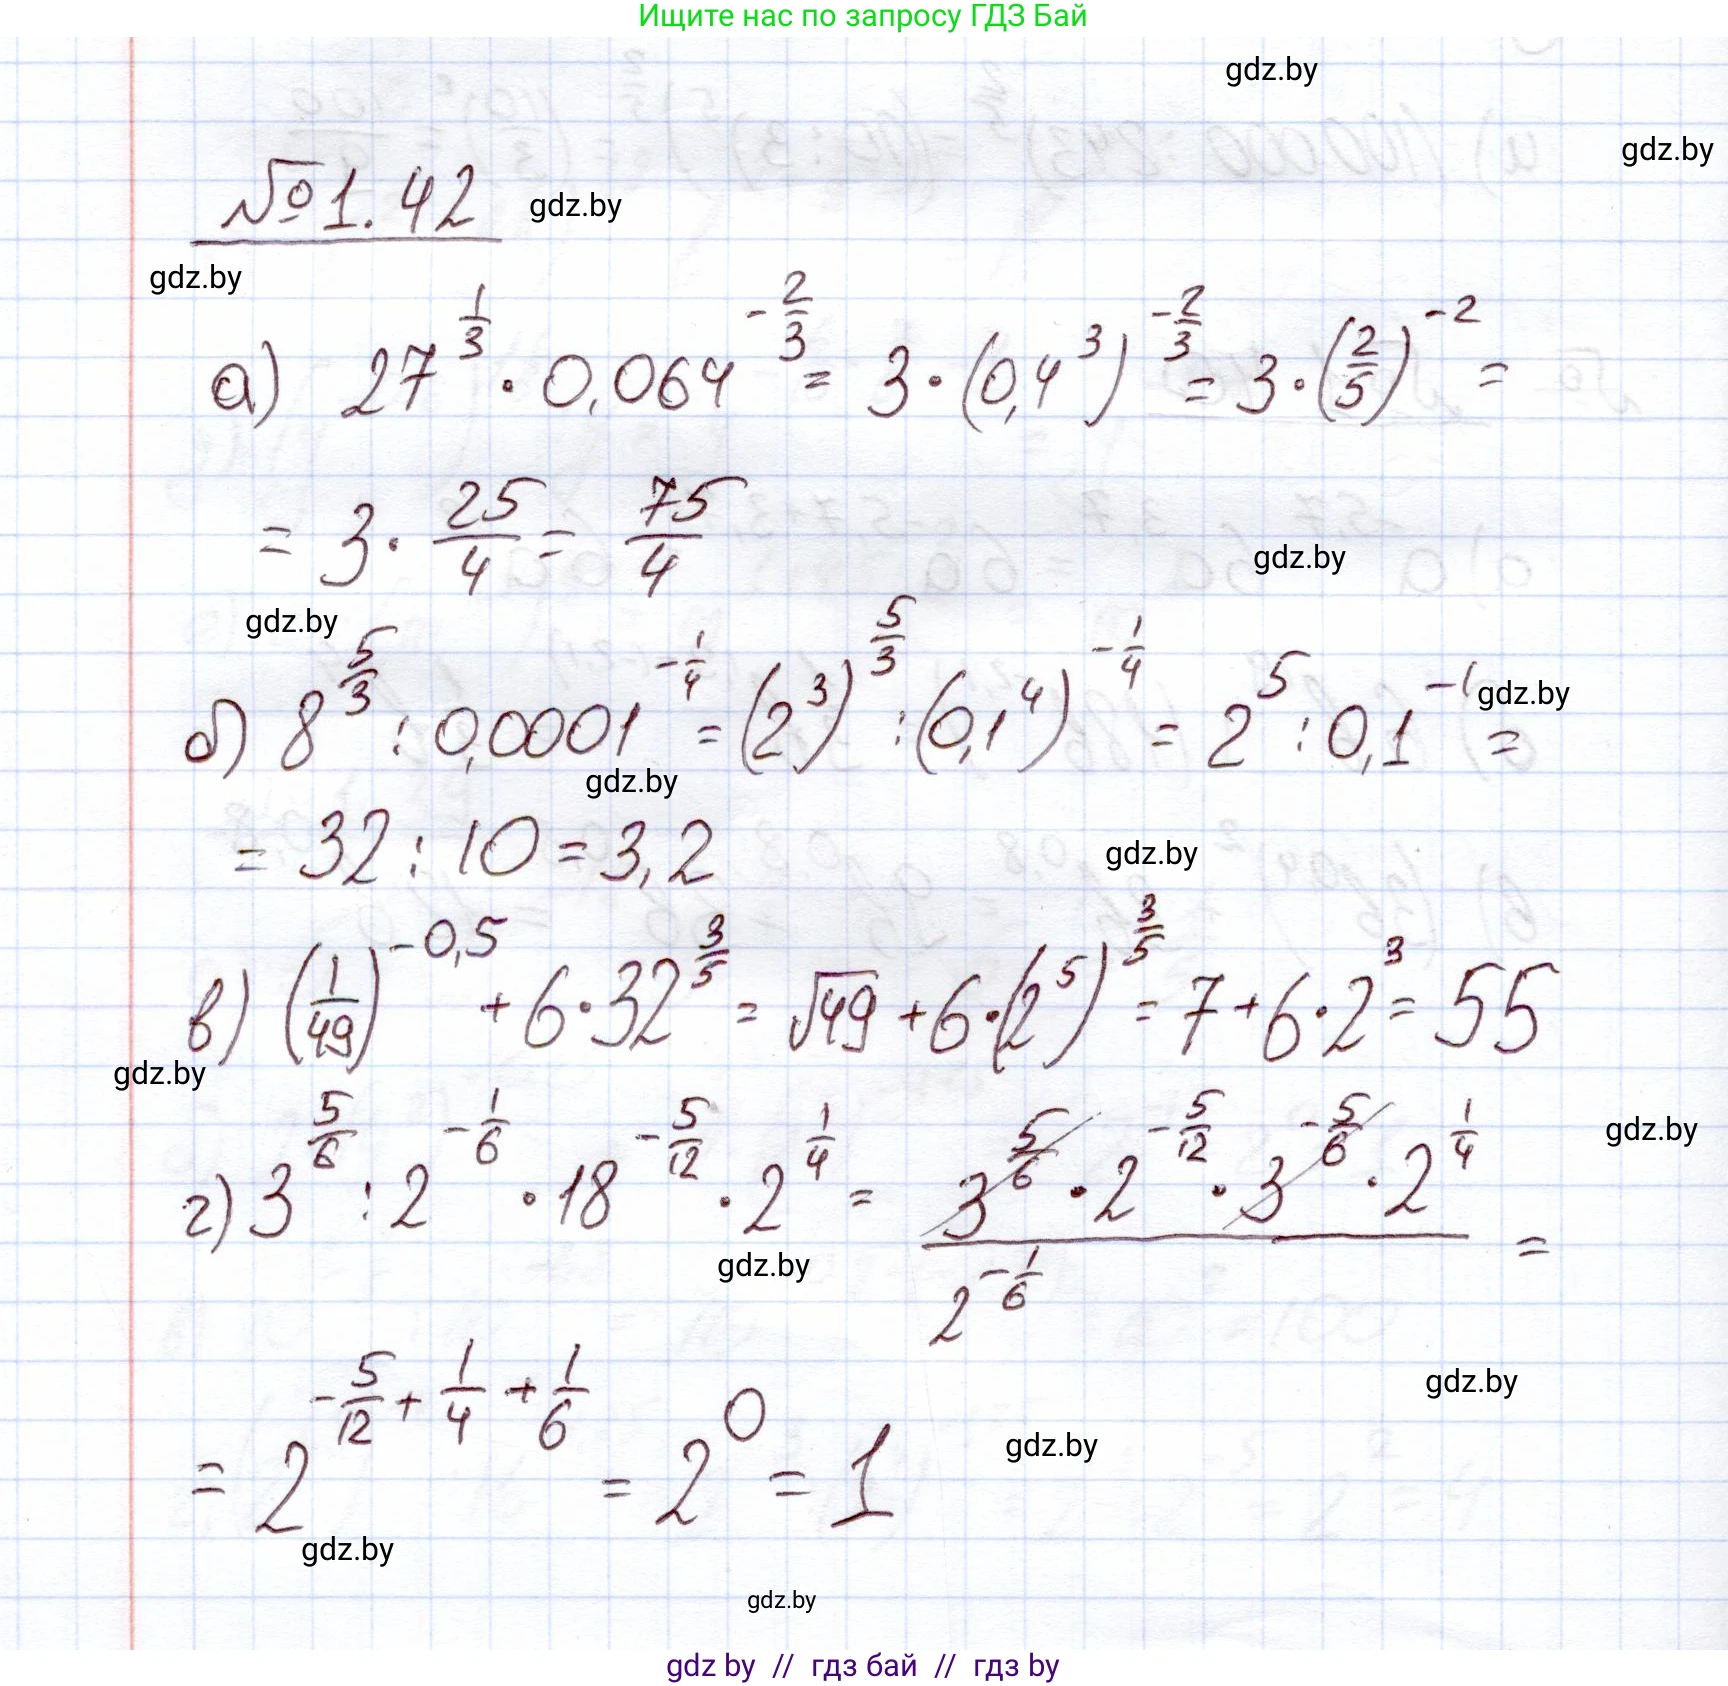 Ищите нас по запросу ГДЗ Бай
gdz.by
gdz.by
№1.42 gdz.by
gdz.by
а) 27^{1/3} · 0,064^{-2/3} = 3 · (0,4^3)^{-2/3} = 3 · (2/5)^{-2} =
= 3 · 25/4 = 75/4
gdz.by
gdz.by
б) 8^{5/3} : 0,0001^{-1/4} = (2^3)^{5/3} : (0,1^4)^{-1/4} = 2^5 : 0,1^{-1} =
gdz.by
gdz.by
= 32 : 10 = 3,2
gdz.by
в) (1/49)^{-0,5} + 6 · 32^{3/5} = √49 + 6 · (2^5)^{3/5} = 7 + 6 · 2^3 = 55
gdz.by
gdz.by
г) 3^{5/6} : 2^{-1/6} · 18^{-5/12} · 2^{1/4} = (3^{5/6} · 2^{-5/12} · 3^{-5/6} · 2^{1/4}) / 2^{-1/6} =
gdz.by
gdz.by
= 2^{-5/12 + 1/4 + 1/6} = 2^0 = 1
gdz.by
gdz.by
gdz.by
gdz by // гдз бай // гдз by